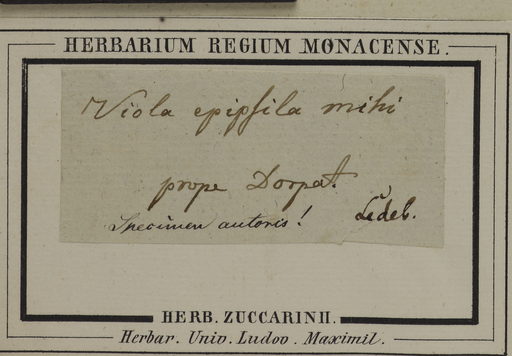 HERBARIUM REGIUM MONACENSE.
Viola epipsila mihi
prope Dorpat.
Specimen autoris! Ledeb.
HERB. ZUCCARINII.
Herbar. Univ. Ludov. Maximil.